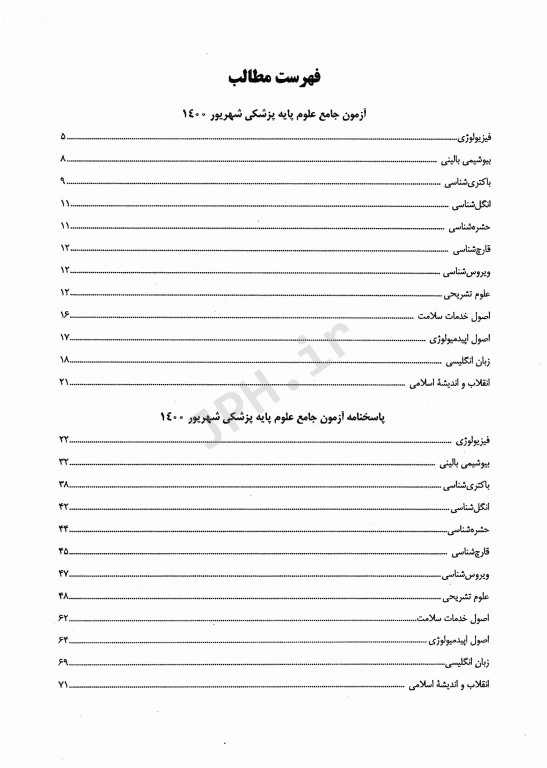 فهرست مطالب
آزمون جامع علوم پایه پزشکی شهریور ۱۴۰۰
فیزیولوژی ۵
بیوشیمی بالینی ۸
باکتری‌شناسی ۹
انگل‌شناسی ۱۱
حشره‌شناسی ۱۱
قارچ‌شناسی ۱۲
ویروس‌شناسی ۱۲
علوم تشریحی ۱۲
اصول خدمات سلامت ۱۶
اصول اپیدمیولوژی ۱۷
زبان انگلیسی ۱۸
انقلاب و اندیشهٔ اسلامی ۲۱
JPH.ir
پاسخنامه آزمون جامع علوم پایه پزشکی شهریور ۱۴۰۰
فیزیولوژی ۲۲
بیوشیمی بالینی ۳۲
باکتری‌شناسی ۳۸
انگل‌شناسی ۴۲
حشره‌شناسی ۴۴
قارچ‌شناسی ۴۵
ویروس‌شناسی ۴۷
علوم تشریحی ۴۸
اصول خدمات سلامت ۶۲
اصول اپیدمیولوژی ۶۴
زبان انگلیسی ۶۹
انقلاب و اندیشهٔ اسلامی ۷۱